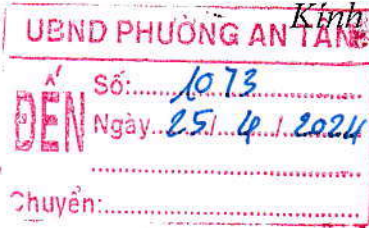 Kính
UBND PHƯỜNG AN TÂN
ĐẾN
Số: 1073
Ngày 25/ 4 / 2024
Chuyển: